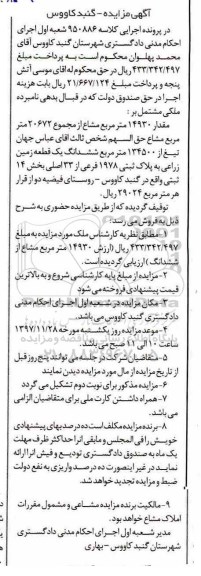 آگهی مزایده - گنبدکاووس
در پرونده اجرایی کلاسه ۹۵۰۸۸۶ شعبه اول اجرای
احکام مدنی دادگستری شهرستان گنبد کاووس آقای
محمد پهلوان محکوم است به پرداخت مبلغ
۴۳۳/۳۴۲/۴۹۷ ریال در حق محکوم له اقای موسی آتش
پنجه و پرداخت مبلغ ۲۱/۶۶۷/۱۲۴ ریال بابت هزینه
اجرا در حق صندوق دولت که در قبال بدهی نامبرده
ملکی مشتمل بر :
مقدار ۱۴۹۳۰ متر مربع مشاع از مجموع ۲۰۶۷۲ متر
مربع مشاع حق السهم شخص ثالث اقای عباس جهان
تیغ از ۱۳۴۵۰۰ متر مربع ششدانگ یک قطعه زمین
زراعی به پلاک ثبتی ۱۹۷۸ فرعی از ۳۳ اصلی بخش ۱۴
ثبتی واقع در گنبد کاووس - روستای فیضیه دو از قرار
هر متر مربع ۲۹۰۲۴ ریال.
توقیف گردیده که از طریق مزایده حضوری به شرح
ذیل به فروش می رسد:
۱- مطابق نظریه کارشناس ملک مورد مزایده به مبلغ
۴۳۳/۳۴۲/۴۹۷ ریال (ارزش ۱۴۹۳۰ متر مربع مشاع از
ششدانگ) ارزیابی گردیده است.
۲- مزایده از مبلغ پایه کارشناسی شروع و به بالاترین
قیمت پیشنهادی فروخته می شود
۳- مکان مزایده در شعبه اول اجرای احکام مدنی
دادگستری گنبد کاووس می باشد.
۴- موعد مزایده روز یکشنبه مورخه ۱۳۹۷/۱۱/۲۸
ساعت ۱۰ الی ۱۱ صبح می باشد.
۵- متقاضیان شرکت در جلسه می توانند پنج روز قبل
از تاریخ مزایده از مال مورد مزایده دیدن نمایند
۶- مزایده مذکور برای نوبت دوم تشکیل می گردد
۷- همراه داشتن کارت ملی برای متقاضیان الزامی
می باشد.
۸- برنده مزایده مکلف است ده درصد بهای پیشنهادی
خویش را فی المجلس و مابقی انرا حداکثر ظرف مهلت
یک ماه به صندوق دادگستری تودیع و فیش انرا ارائه
نماید در غیر اینصورت ده درصد واریزی به نفع دولت
ضبط و مزایده تجدید خواهد شد.
۹- مالکیت برنده مزایده مشاعی و مشمول مقررات
املاک مشاع خواهد بود.
مدیر شعبه اول اجرای احکام مدنی دادگستری
شهرستان گنبد کاووس - بهاری